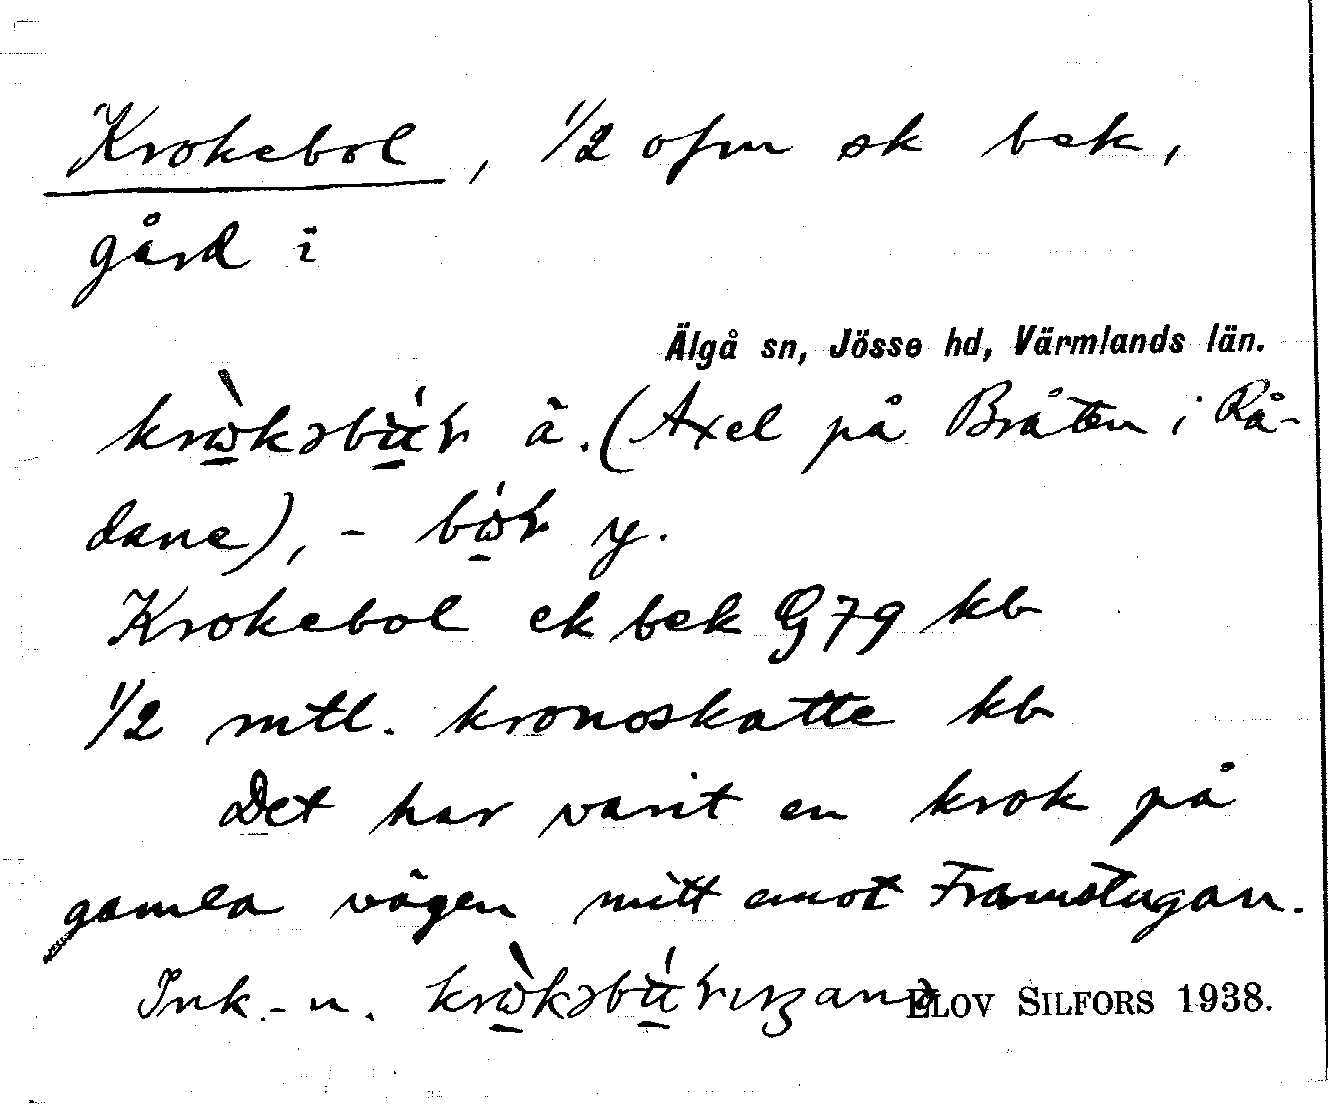 Krokebol, 1/2 ofm sk bek,
gård i
Älgå sn, Jösse hd, Värmlands län.
krὼkəbu̇́ɽ ä. (Axel på Bråten i Rå-
dane), - bώɽ y.
Krokebol ek bek G79 kb
1/2 mtl. kronoskatte kb
Det har varit en krok på
gamla vägen mitt emot Framstugan.
Ink.-n.
ELOV SILFORS 1938.